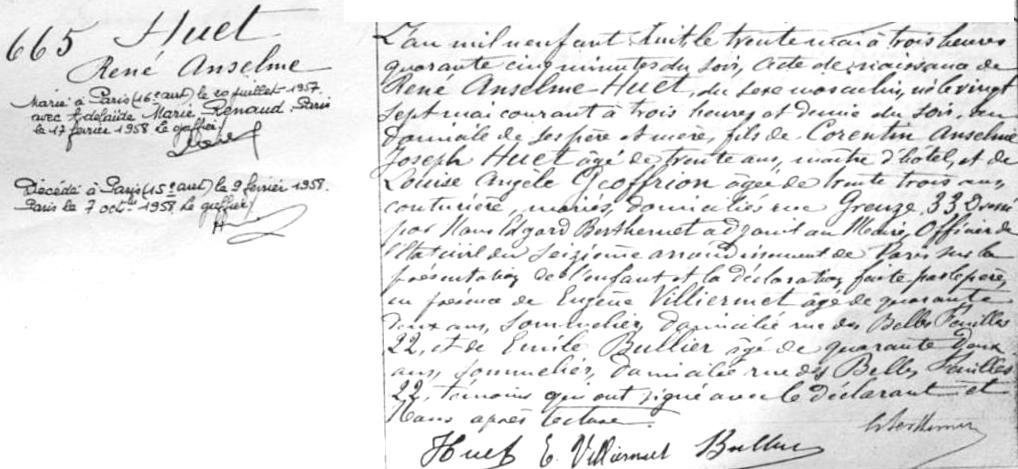 665 Huet
René Anselme
Marié à Paris (16e arrt) le 20 juillet 1957
avec Adelaïde Marie Renaud. Paris
le 17 février 1958 Le greffier/
Décédé à Paris (15e arrt) le 9 février 1958.
Paris le 7 octbre 1958. Le greffier/
L'an mil neuf cent huit le trente mai à trois heures
quarante cinq minutes du soir, Acte de naissance de
René Anselme Huet, du sexe masculin, né le vingt
sept mai courant à trois heures et demie du soir, au
domicile de ses père et mère, fils de Corentin Anselme
Joseph Huet âgé de trente ans, maître d'hôtel, et de
Louise Angèle Geoffrion âgée de trente trois ans,
couturière, mariés, domiciliés rue Greuze 33. Dressé
par Nous Edgard Berthemet adjoint au Maire, Officier de
l'Etat civil du seizième arrondissement de Paris sur la
présentation de l'enfant et la déclaration faite par le père,
en présence de Eugène Villiermet âgé de quarante
deux ans, sommelier, domicilié rue des Belles Feuilles
22, et de Emile Bullier âgé de quarante deux
ans, sommelier, domicilié rue des Belles Feuilles
22, témoins qui ont signé avec le déclarant et
Nous après lecture.
Huet E. Villiermet Bullier